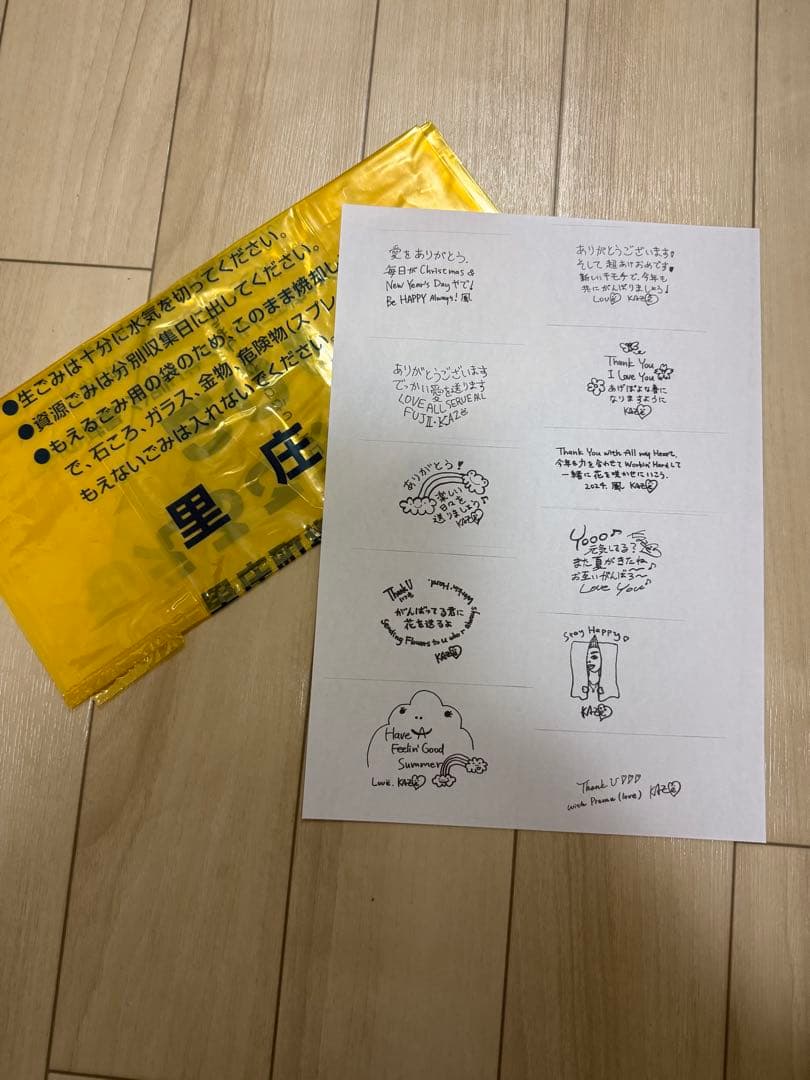 ●生ごみは十分に水気を切ってください。
●資源ごみは分別収集日に出してください。
●もえるごみ用の袋のため、このまま焼却し
で、石ころ、ガラス、金物、危険物(スプレ
もえないごみは入れないでください。
里庄
里庄町
愛をありがとう、
毎日が Christmas &
New Year's Day やで!
Be HAPPY Always! 風
ありがとうございます
でっかい愛を送ります
LOVE ALL SERVE ALL
FUJII・KAZE
ありがとう!
楽しい
日々を
送りましょう
KAZE
Thank U
いつも
がんばってる君に
花を送るよ
Sending Flowers to u who r always
Workin' Hard.
KAZE
Have A
Feelin' Good
Summer
Love, KAZE
ありがとうございます!
そして超あけおめです!
新しいキモチで、今年も
共にがんばりましょう!
Love KAZE
Thank You
I Love You
あげぽよな春に
なりますように
KAZE
Thank You with All my Heart,
今年も力を合わせて Workin' Hard して
一緒に花を咲かせにいこう。
2024. 風 KAZE
Yooo♪
元気してる?
また夏がきたね
お互いがんばろ〜♪
Love You
Stay Happy♡
KAZE
Thank U♡♡♡
with Prema (love) KAZE